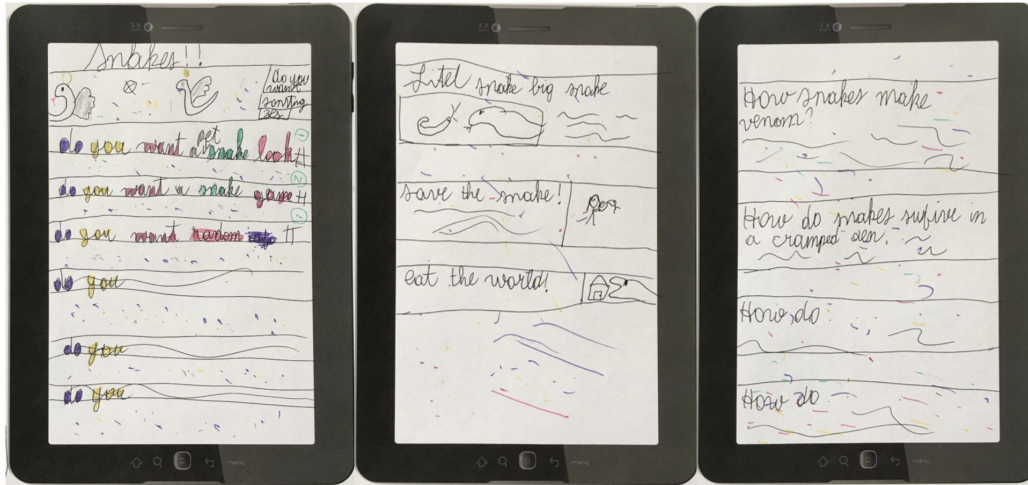 Snakes!!
do you
want
do you want a pet snake look #
1
do you want a snake game #
2
do you want #
do you
do you
do you
Litel snake big snake
save the snake!
eat the world!
How snakes make
venom?
How do snakes sufive in
a cramped den.
How do
How do
menu
menu
menu